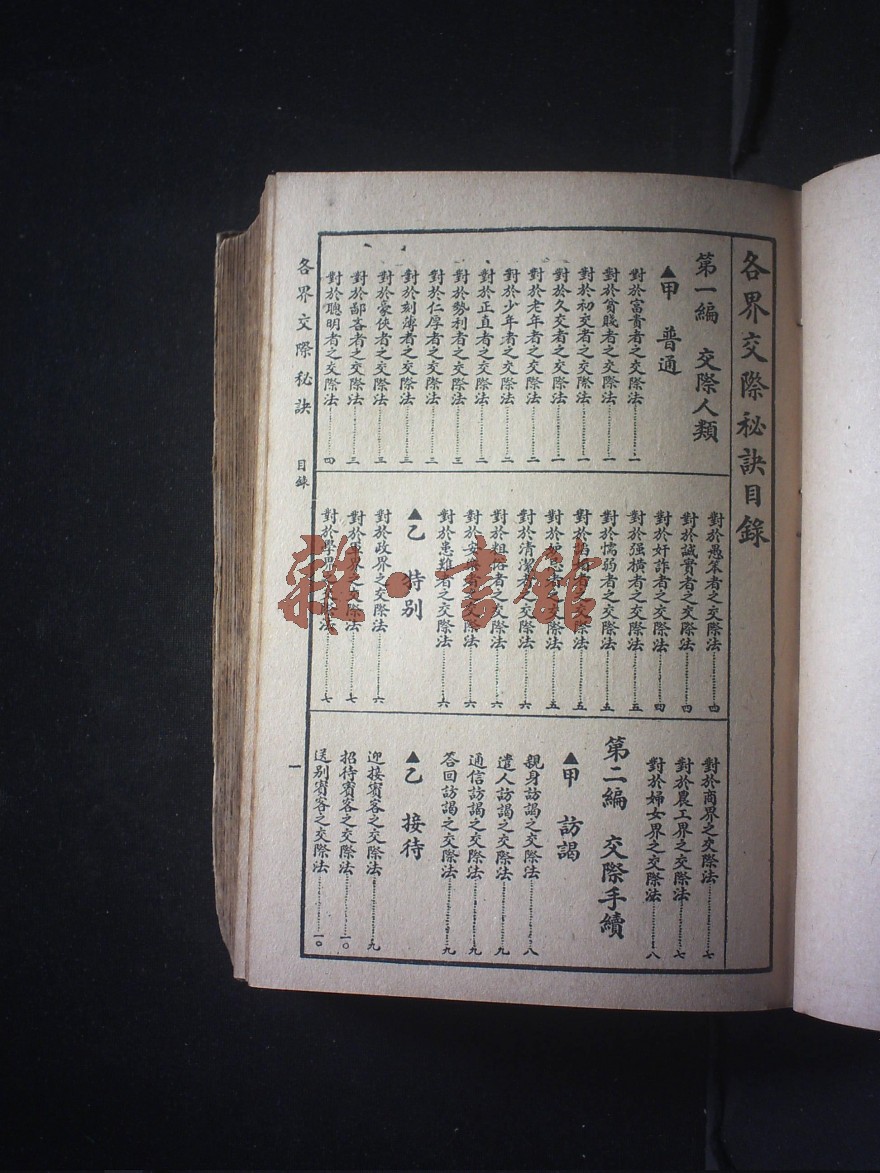 各界交際秘訣目錄
第一編 交際人類
▲甲 普通
對於富貴者之交際法……一
對於貧賤者之交際法……一
對於初交者之交際法……一
對於久交者之交際法……一
對於老年者之交際法……二
對於少年者之交際法……二
對於正直者之交際法……二
對於勢利者之交際法……三
對於仁厚者之交際法……三
對於刻薄者之交際法……三
對於豪俠者之交際法……三
對於鄙吝者之交際法……三
對於聰明者之交際法……四
對於愚笨者之交際法……四
對於誠實者之交際法……四
對於奸詐者之交際法……四
對於强橫者之交際法……五
對於懦弱者之交際法……五
對於者之交際法……五
對於者之交際法……五
對於清潔者之交際法……六
對於粗俗者之交際法……六
對於安樂者之交際法……六
對於患難者之交際法……六
▲乙 特别
對於政界之交際法……六
對於軍界之交際法……七
對於學界之交際法……七
對於商界之交際法……七
對於農工界之交際法……七
對於婦女界之交際法……八
第二編 交際手續
▲甲 訪謁
親身訪謁之交際法……八
遣人訪謁之交際法……九
通信訪謁之交際法……九
答回訪謁之交際法……九
▲乙 接待
迎接賓客之交際法……九
招待賓客之交際法……一〇
送别賓客之交際法……一〇
各界交際秘訣 目錄
一
雜·書館